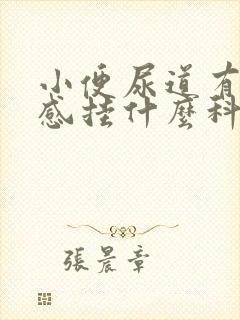 小便尿道有
感挂什麼科
張晨章